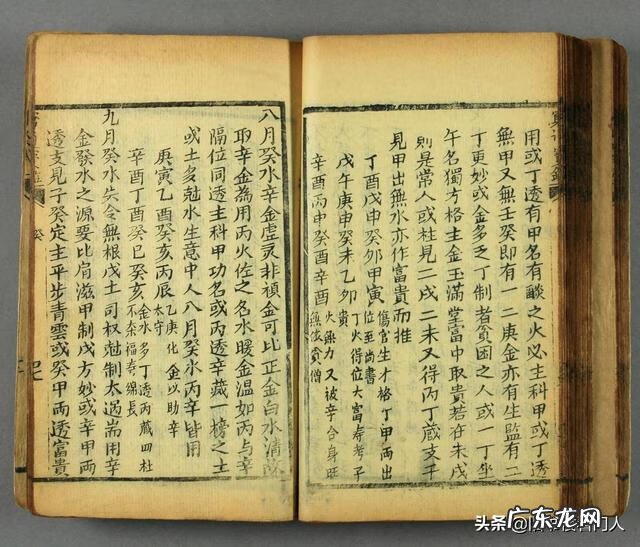 用或丁透有甲名有燄之火必主科甲或丁透
無甲又無壬癸即有一二庚金亦有生監有二
丁更妙或金多乏丁制者貧困之人或一丁坐
午名獨方格主金玉滿堂富中取貴若在未戌
則是常人或柱見二戌二未又得丙丁藏支干
見甲出無水亦作富貴而推
丁酉戊申癸卯甲寅
傷官生才格丁甲兩出
位至尚書
戊午庚申癸未乙卯
丁火得位大富寿考子
貴
辛酉丙申癸酉辛酉
火無力又被辛合身旺
無依貧僧
八月癸水辛金虛灵非頑金可比正金白水清故
取辛金為用丙火佐之名水暖金温如丙与辛
隔位同透主科甲功名或丙透辛藏一榜之士
或土多尅水生意中人八月癸水丙辛皆用
庚寅乙酉癸亥丙辰
乙庚化金以助辛
太守
辛酉丁酉癸巳癸亥
金水多丁透丙藏四柱
不奈福寿綿長
九月癸水失令無根戊土司权尅制太過耑用辛
金發水之源要比肩滋甲制戊方妙或辛甲兩
透支見子癸定主平步青雲或癸甲両透富貴
癸
头条
门人
广东龙网